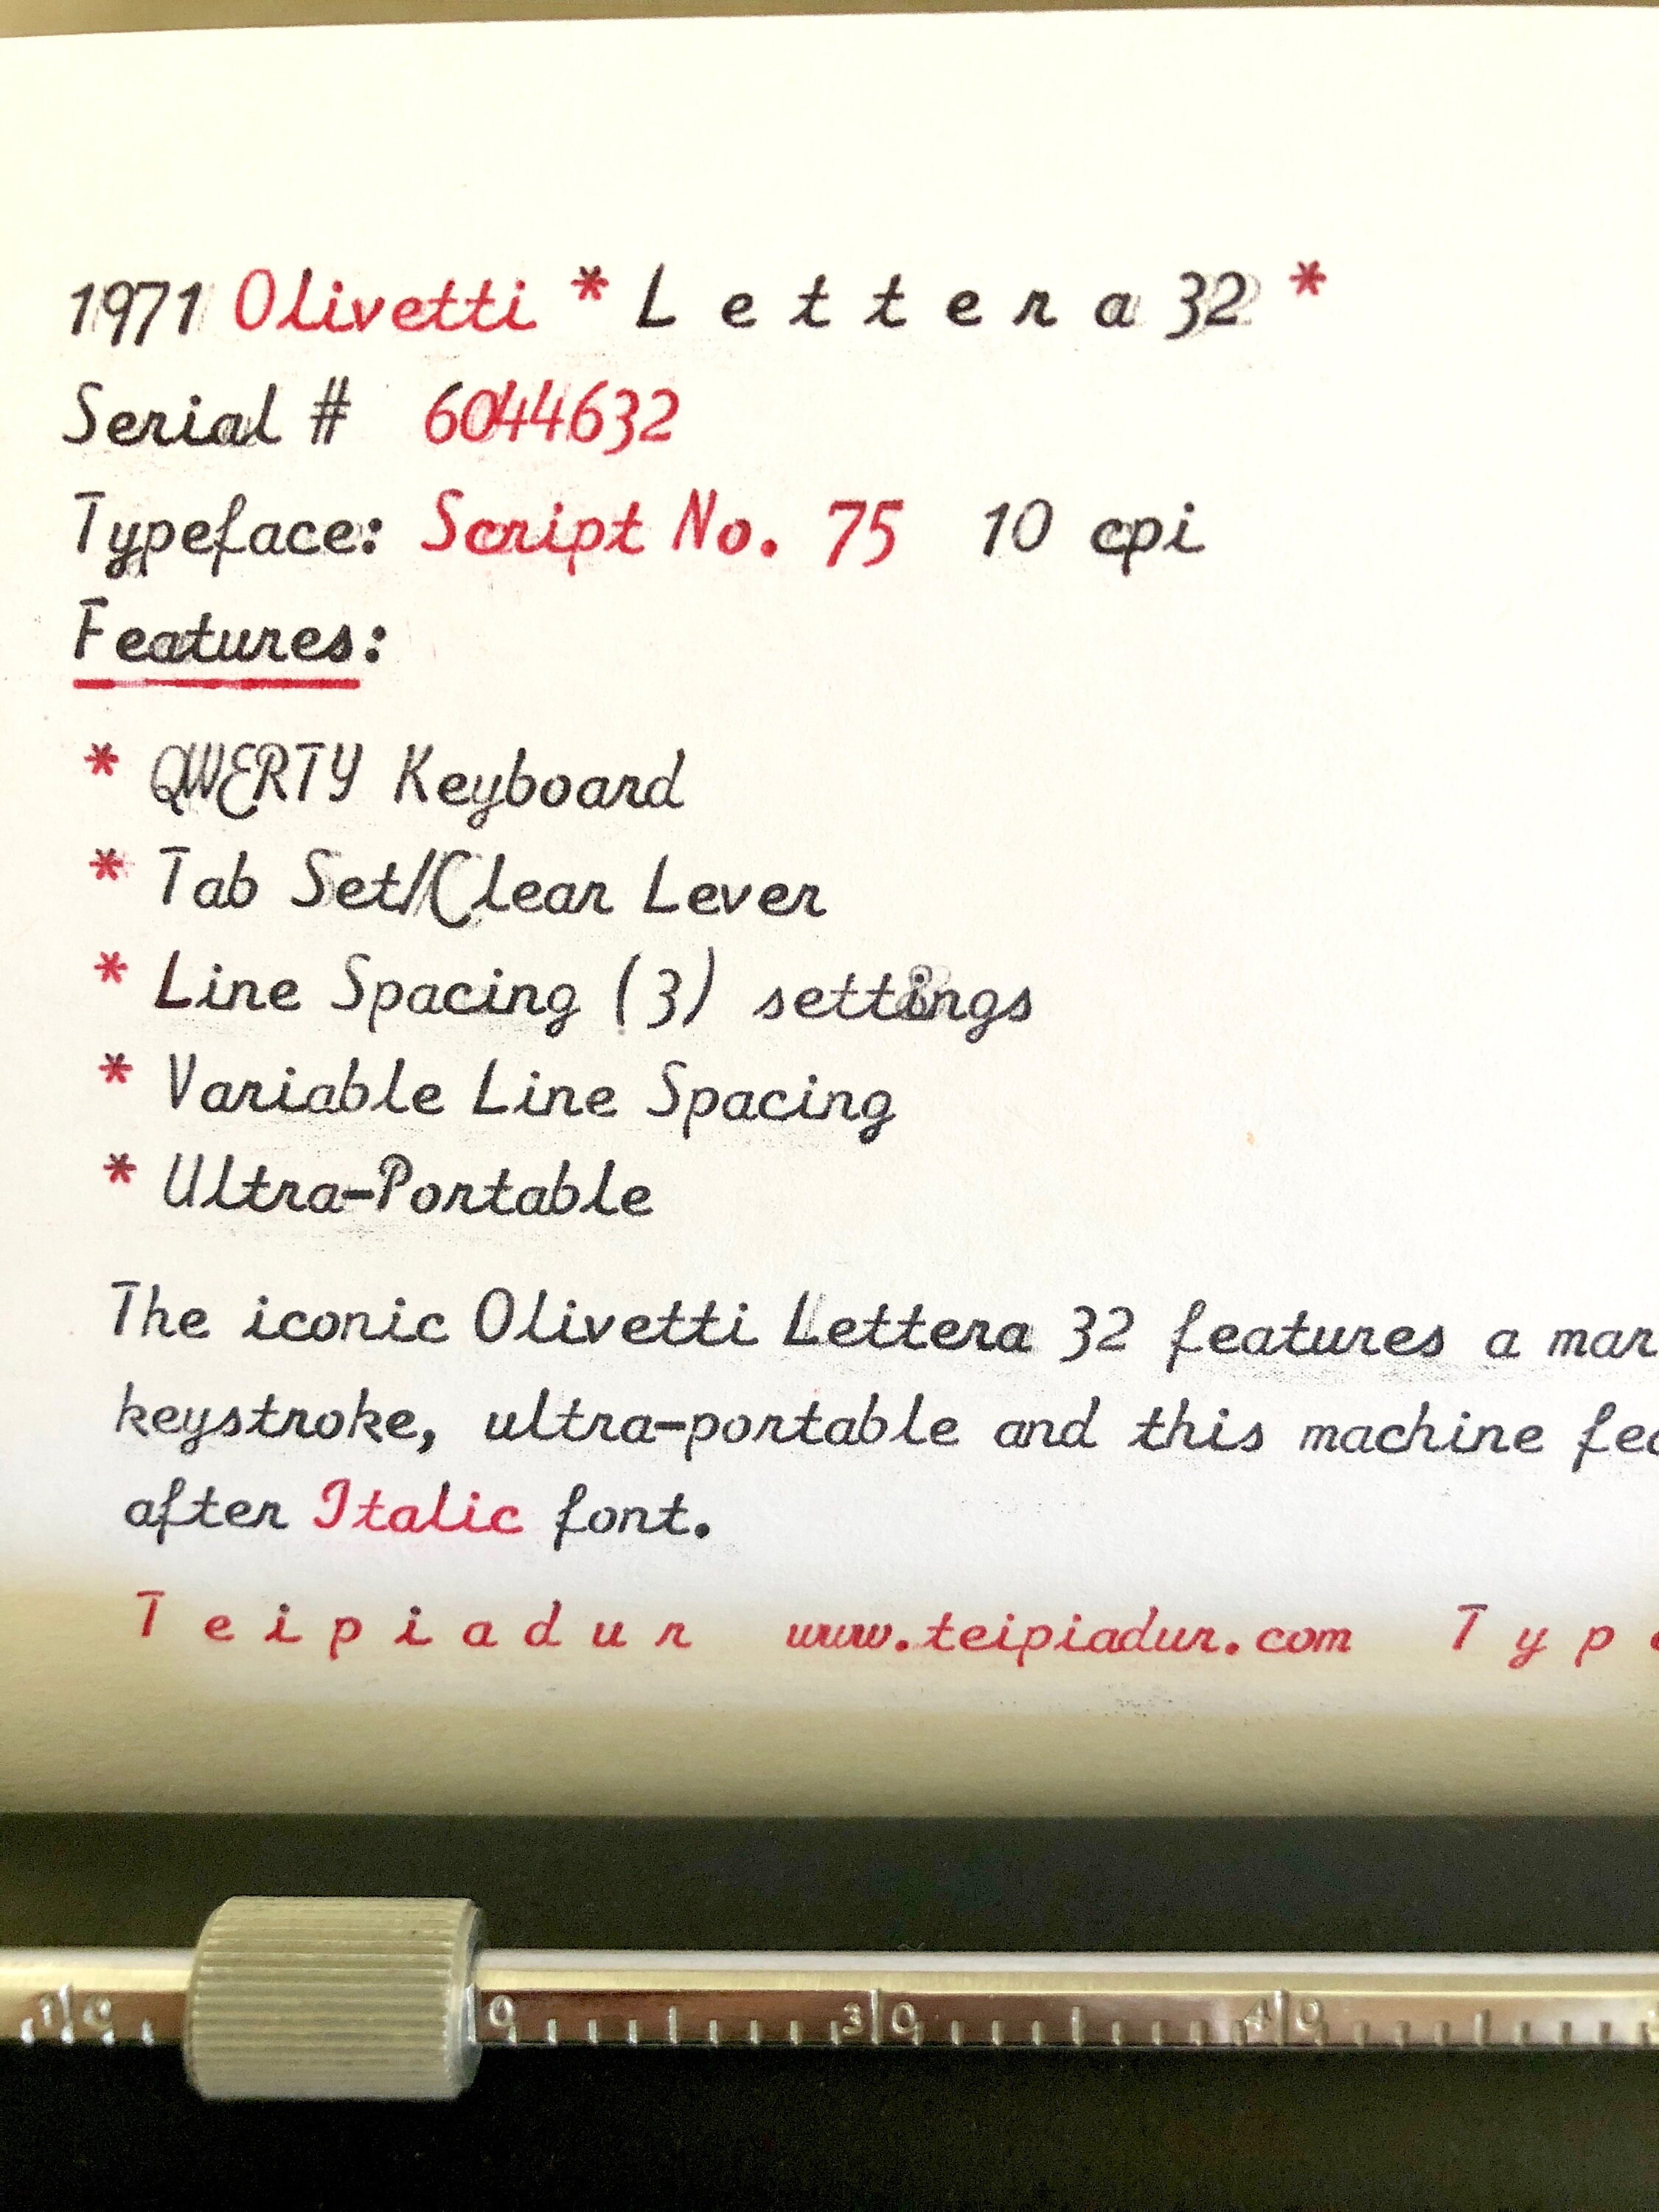 1971 Olivetti * L e t t e r a 32 *
Serial # 6044632
Typeface: Script No. 75 10 cpi
Features:
* QWERTY Keyboard
* Tab Set/Clear Lever
* Line Spacing (3) settings
* Variable Line Spacing
* Ultra-Portable
The iconic Olivetti Lettera 32 features a
keystroke, ultra-portable and this machine
after Italic font.
T e i p i a d u r www.teipiadur.com T y p
10 30 40